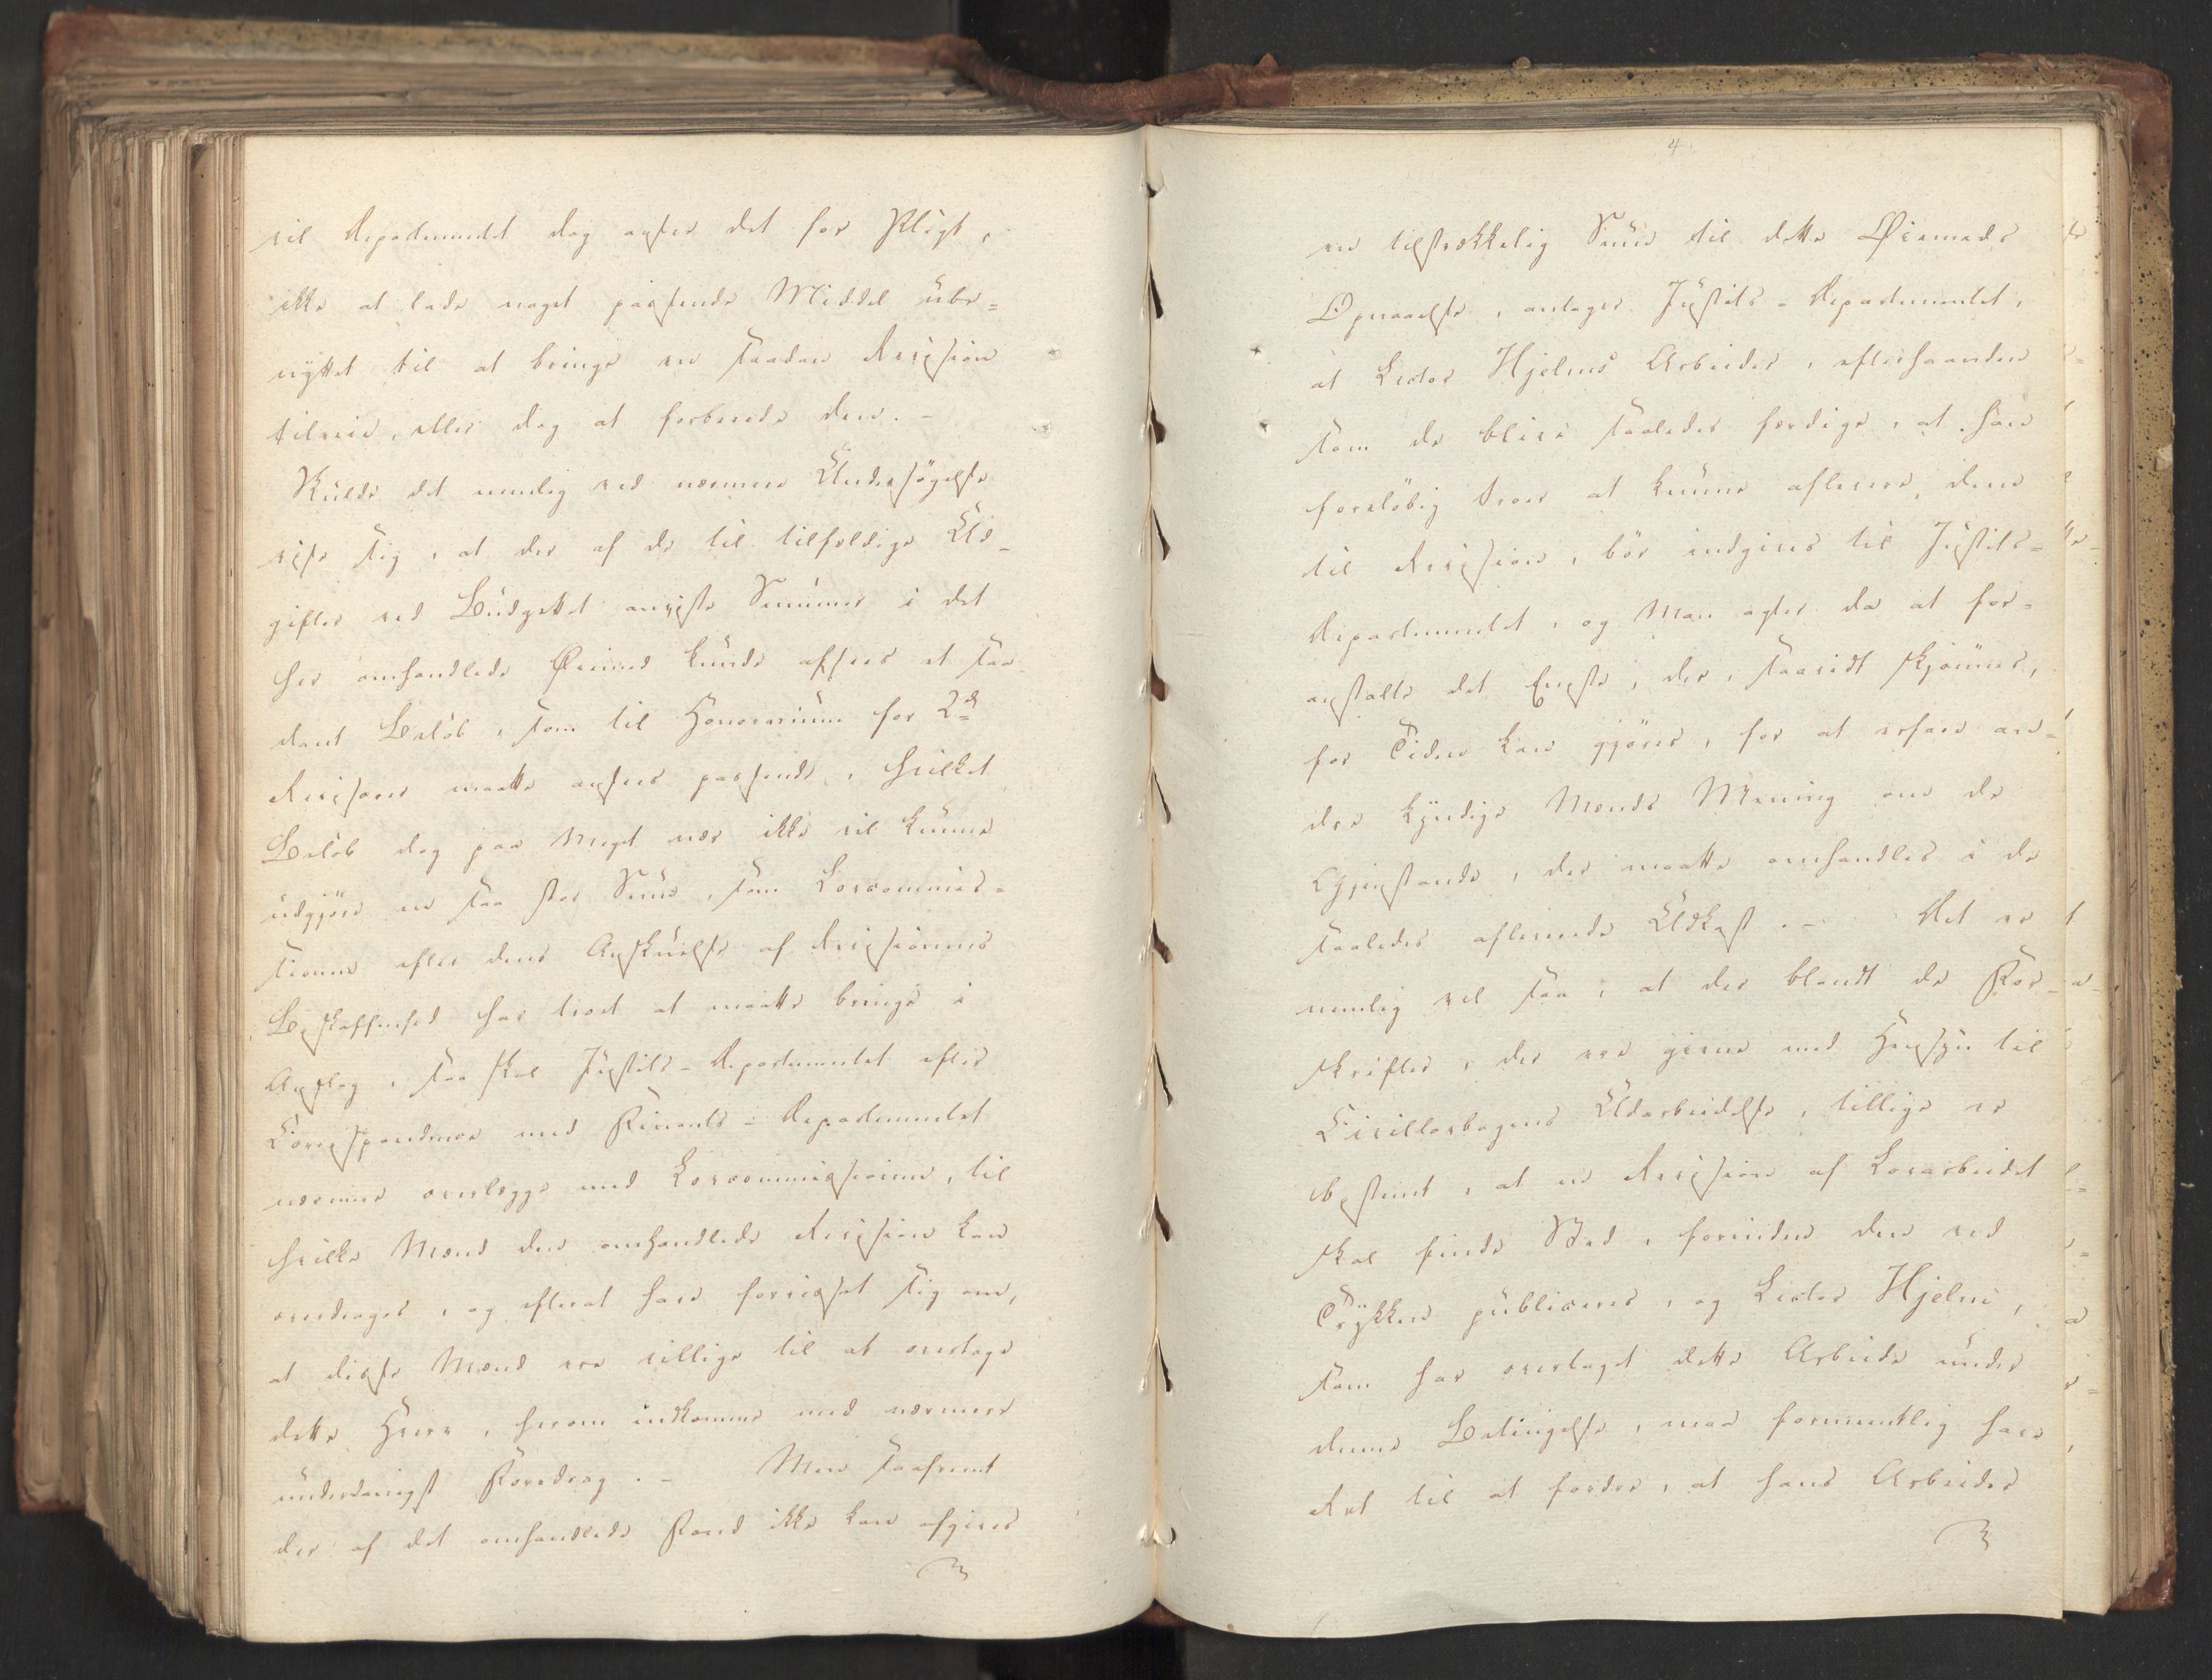 vil Departementet dog anseer det for Pligt,
ikke at lade noget passende Middel ube-
nyttet til at bringe en saadan Revision
tilveie, eller dog at forberede den. -
Skulde det nemlig ved nærmere Undersøgelse
vise sig, at der af de til tilfældige Ud-
gifter ved Budgettet anviste Summer i det
her omhandlede Øiemed kunde afsees et saa-
dant Beløb, som til Honorarium for 2de
Revisorer maatte ansees passende, hvilket
Beløb dog paa meget nær ikke vil kunne
udgjøre en saa stor Sum, som Lovcommis-
sionen efter dens Anskuelse af Revisionens
Beskaffenhed har troet at maatte bringe i
Anslag, saa skal Justits-Departementet efter
Correspondence med Finants-Departementet
nærmere overlægge med Lovcommissionen, til
hvilke Mænd den omhandlede Revision kan
overdrages, og efterat have forvisset sig om,
at disse Mænd ere villige til at overtage
dette Hverv, herom indkomme med nærmere
underdanigst Foredrag. - Men saafremt
der af det omhandlede Fond ikke kan afgives
4
en tilstrækkelig Sum til dette Øiemeds
Opnaaelse, antager Justits-Departementet,
at Lector Hjelms Arbeider, efterhaanden
som de blive saaledes færdige, at han
foreløbig troer at kunne aflevere dem
til Revision, bør indgives til Justits-
Departementet, og man agter da at for-
anstalte det Eneste, der, saavidt skjønnes,
for Tiden kan gjøres, for at erfare an-
dre kyndige Mænds Mening om de
Gjenstande, der maatte omhandles i de
saaledes afleverede Udkast. - Det er
nemlig vel saa, at der blandt de For-
skrifter, der ere givne med Hensyn til
Civillovbogens Udarbeidelse, tillige er
bestemt, at en Revision af Lovarbeidet
skal finde Sted, forinden den ved
Trykken publiceres, og Lector Hjelm,
som har overtaget dette Arbeide under
denne Betingelse, maa formeentlig have
Ret til at fordre, at hans Arbeider